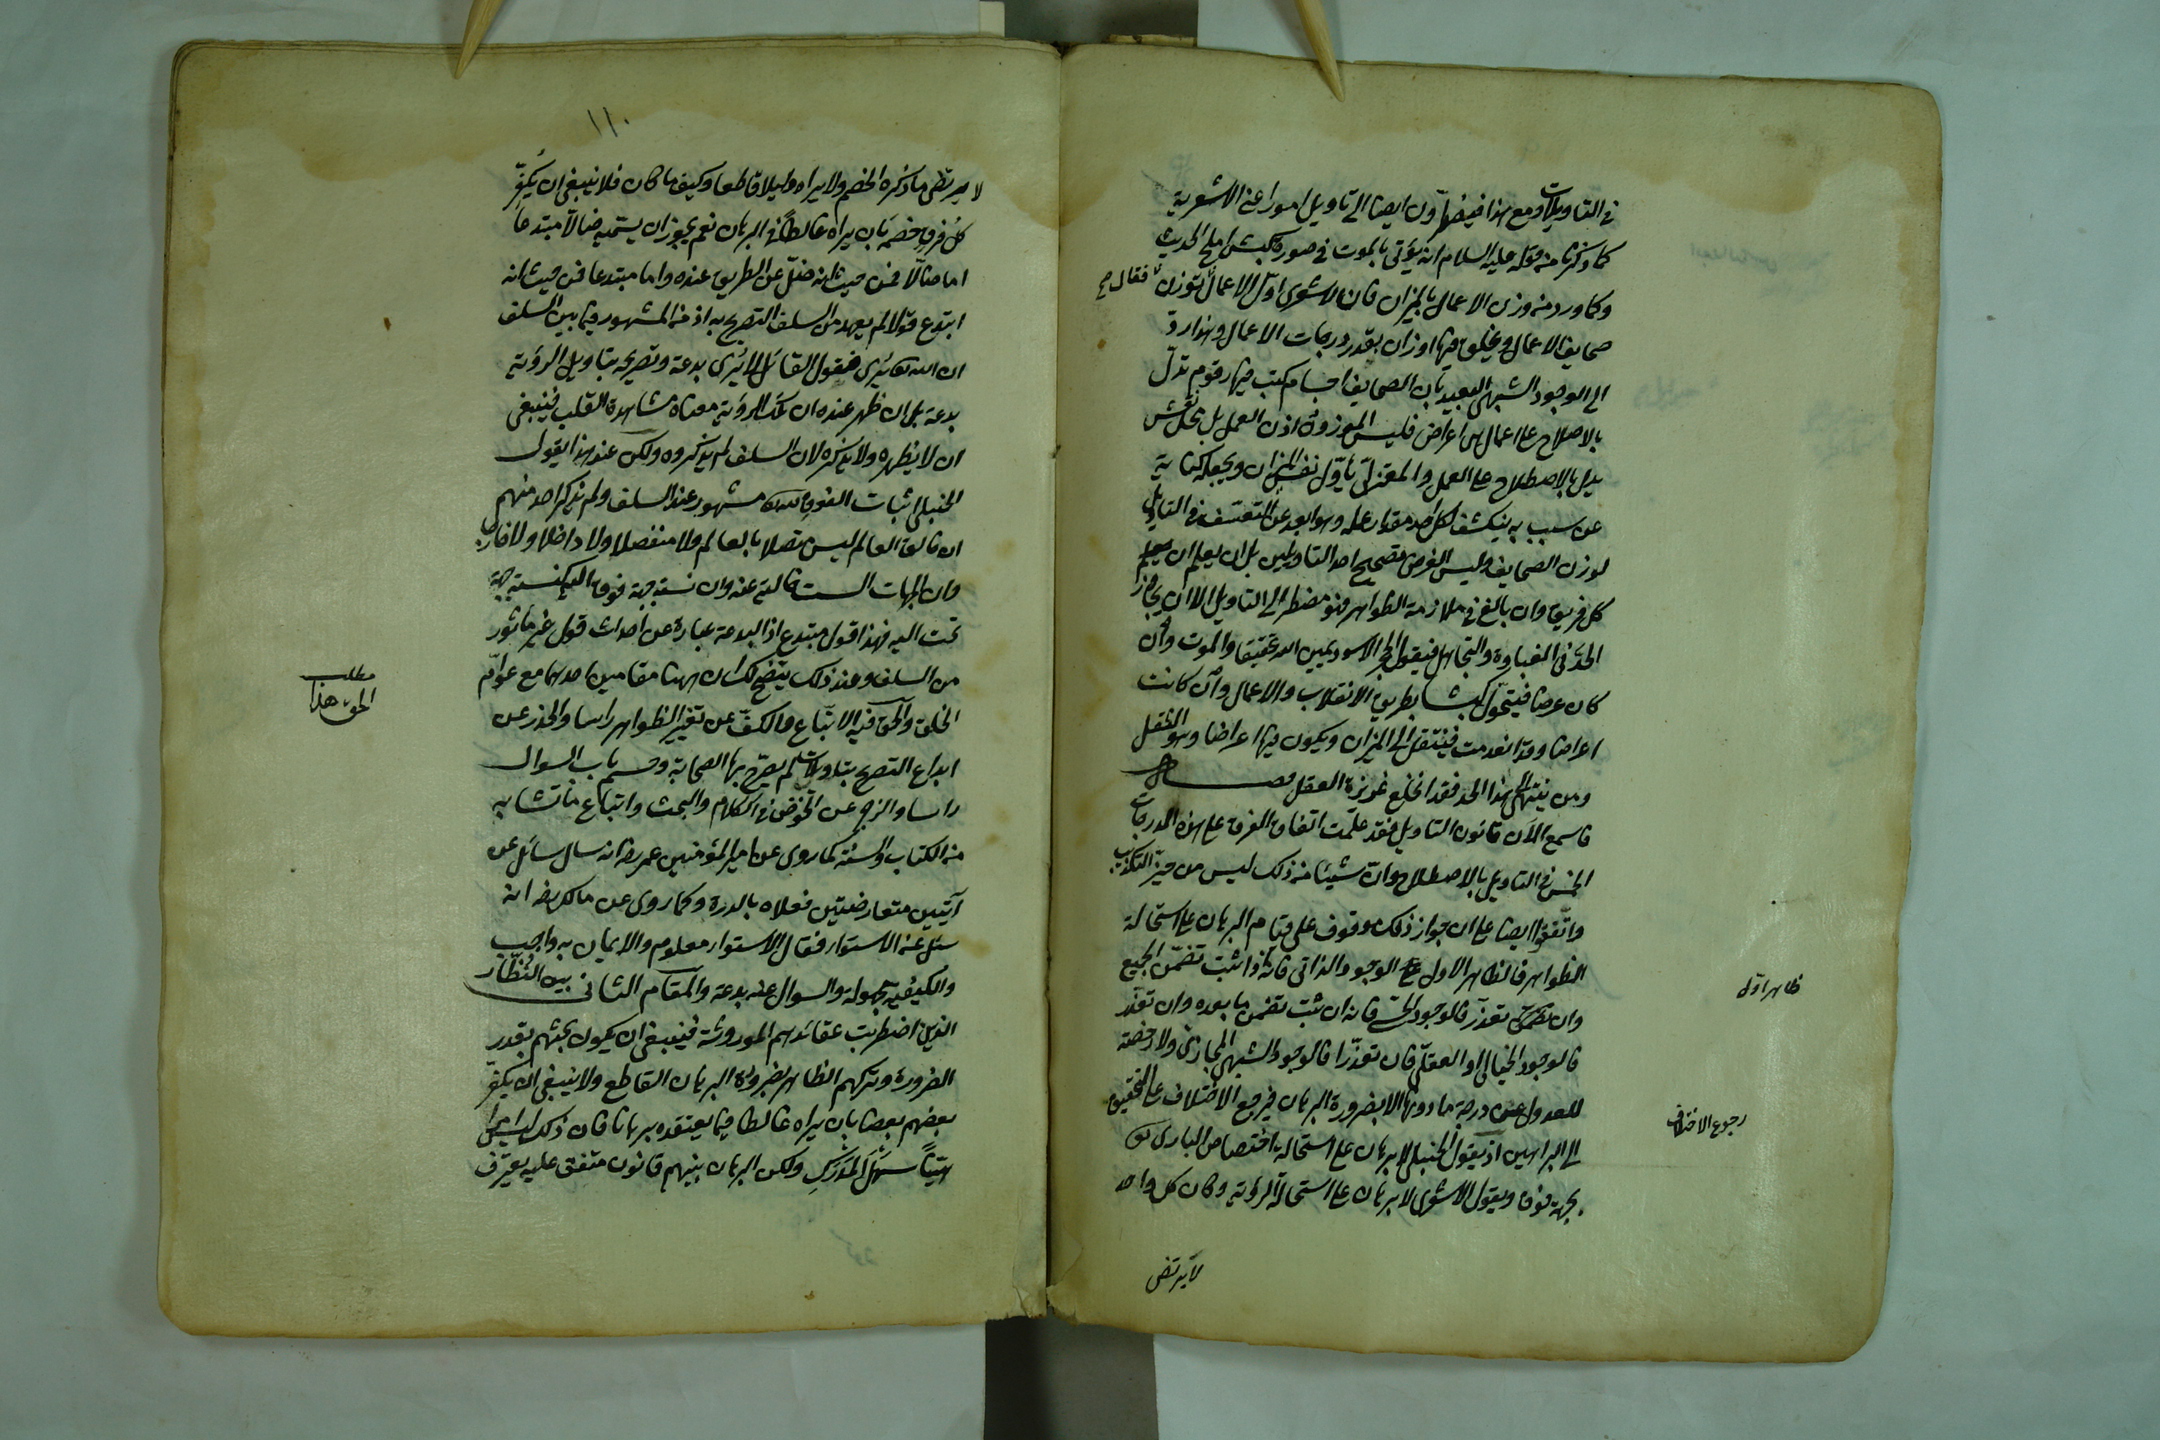 في التاويلات ومع هذا فيضطرون ايضا الى تاويل امور اعني الاشعرية
كما ذكرنا من قوله عليه السلام انه يؤتى بالموت في صورة كبش املح الحديث
وكما ورد من وزن الاعمال بالميزان فان الاشعري اول الاعمال توزن فقال صح
صحايف الاعمال ويخلق فيها اوزان بقدر درجات الاعمال وهذا رد
الى الوجود الشبهي البعيد فان الصحايف اجسام كتب فيها رقوم تدل
بالاصلاح على اعمال هي اعراض فليس الموزون اذن العمل بل محل نقش
يدل بالاصطلاح على العمل والمعتزلي ياول نفس الميزان ويجعله كناية
عن سبب به ينكشف لكل احد مقدار عمله وهو ابعد عن التعسف في التاويل
لوزن الصحايف وليس الغرض تصحيح احد التاويلين بل ان يعلم ان
كل فريق وان بالغ في ملازمة الظواهر فهو مضطر الى التاويل الا ان يجاوز
الحد في الغباوة والتجاهل فيقول الحجر الاسود يمين الله تحقيقا والموت وان
كان عرضا فيتحول كبشا بطريق الانقلاب والاعمال وان كانت
اعراضا وقد انعدمت فينتقل الى الميزان ويكون فيها اعراضا وهو الثقل
ومن ينتهي الى هذا الحد فقد انخلع غريزة العقل فصل
فاسمع الآن قانون التاويل فقد علمت اتفاق الفرق على هذه الدرجات
الخمس في التاويل بالاصطلاح وان شيئا من ذلك ليس من حيز التكذيب
واتفقوا ايضا على ان جواز ذلك موقوف على قيام البرهان على استحالة
الظواهر فالظاهر الاول الوجود الذاتي فانه اذا ثبت تضمن الجميع
وان تعذر فالوجود الحسي فانه ان ثبت تضمن ما بعده وان تعذر
فالوجود الخيالي او العقلي فان تعذرا فالوجود الشبهي المجازي ولا رخصة
للعدول عن درجة ما دونها الا بضرورة البرهان فيرجع الاختلاف على التحقيق
الى البراهين اذ يقول الحنبلي لا برهان على استحالة اختصاص الباري تع
بجهة فوق ويقول الاشعري لا برهان على استحالة الرؤية وكان كل واحد
لا يرتضى
ظاهر اول
رجوع الاختلاف
١١٠
لا يرتضى ما ذكره الخصم ولا يراه دليلا قاطعا وكيف ما كان فلا ينبغي ان يكفر
كل فريق خصمه بان يراه غالطا في البرهان نعم يجوز ان يسميه ضالا مبتدعا
اما ضالا فمن حيث انه ضل عن الطريق عنده واما مبتدعا فمن حيث انه
ابتدع قولا لم يعهد من السلف التصريح به اذ من المشهور فيما بين السلف
ان الله تع يرى فقول القائل لا يرى بدعة وتصريحه بتاويل الرؤية
بدعة بل ان ظهر عنده ان تلك الرؤية معناه مشاهدة القلب فينبغي
ان لا يظهره ولا يذكره لان السلف لم يذكروه ولكن عند هذا يقول
الحنبلي اثبات الفوق لله مشهور عند السلف ولم يذكر احد منهم
ان خالق العالم ليس متصلا بالعالم ولا منفصلا ولا داخلا ولا خارجا
وان الجهات الست خالية عنه وان نسبة جهة فوق اليه كنسبة جهة
تحت اليه فهذا قول مبتدع اذ البدعة عبارة عن احداث قول غير ماثور
من السلف وعند ذلك يتضح لك ان ههنا مقامين احدهما مع عوام
الخلق والحق فيه الاتباع والكف عن تغيير الظواهر راسا والحذر عن
ابداع التصريح بتاويلات لم يصرح بها الصحابة وحسم باب السوال
راسا والزجر عن الخوض في الكلام والبحث واتباع ما تشابه
من الكتاب والسنة كما روي عن امير المؤمنين عمر رض انه سال سائل عن
آيتين متعارضتين فعلاه بالدرة وكما روي عن مالك رض انه
سئل عن الاستواء فقال الاستواء معلوم والايمان به واجب
والكيفية مجهولة والسوال عنه بدعة والمقام الثاني بين النظار
الذين اضطربت عقائدهم الموروثة فينبغي ان يكون بحثهم بقدر
الضرورة وتركهم الظاهر بضرورة البرهان القاطع ولا ينبغي ان يكفر
بعضهم بعضا بان يراه غالطا فيما يعتقده برهانا فان ذلك ليس
هينا سهل المدرك وليكن البرهان بينهم قانون متفق عليه يعترف
مطلب
الحق هذا